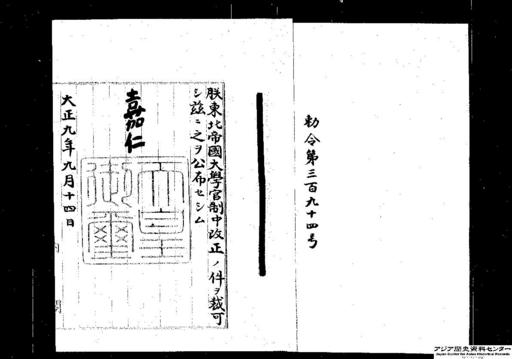 勅令第三百九十四号
朕東北帝國大學官制中改正ノ件ヲ裁可
シ茲ニ之ヲ公布セシム
嘉仁
天皇御璽
大正九年九月十四日
内閣
アジア歴史資料センター
Japan Center for Asian Historical Records